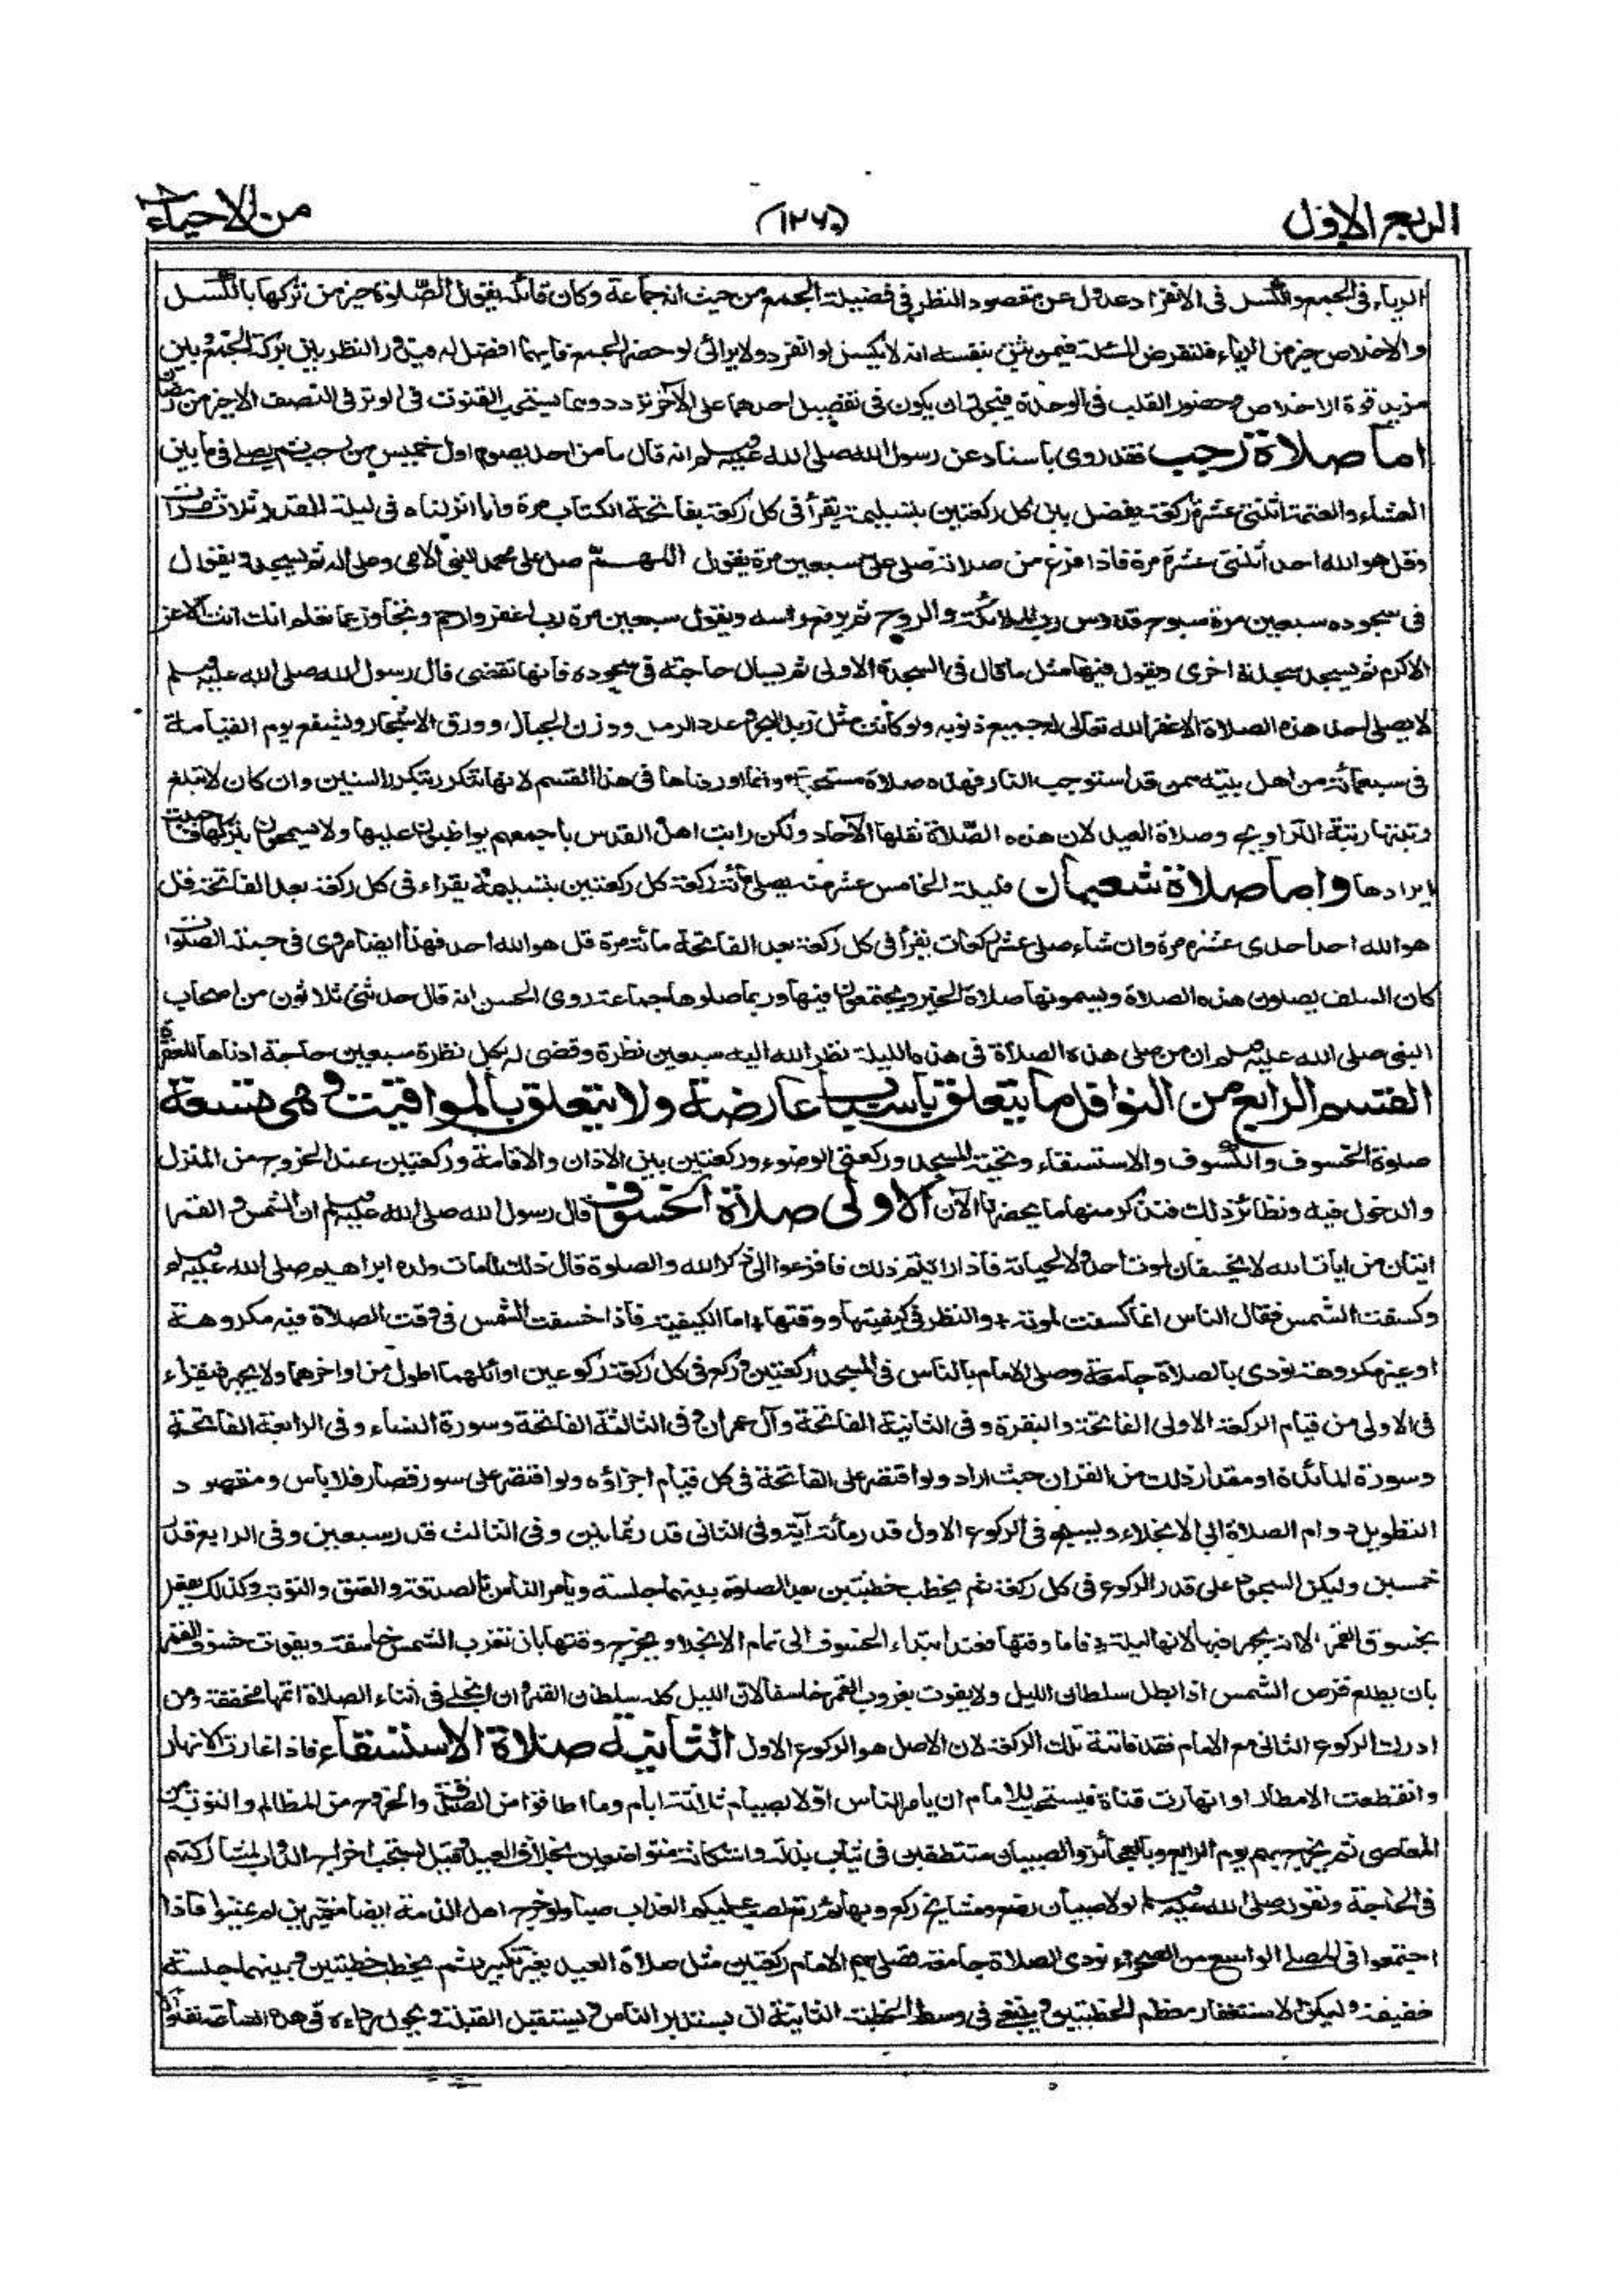 الربع الاول
(١٢٦)
من الاحياء
الرياء في الجمع والكسل في الانفراد عدول عن مقصود النظر في فضيلة الجمع من حيث انه جماعة وكان قائله يقول الصلوة خير من تركها بالكسل
والاخلاص خير من الرياء فلنفرض المسئلة فيمن يثق بنفسه انه لا يكسل لو انفرد ولا يرائى لو حضر الجمع فايهما افضل له فيدور النظر بين بركة الجمع وبين
مزيد قوة الاخلاص وحضور القلب في الوحدة فيجوز ان يكون في تفضيل احدهما على الآخر تردد ومما يستحب القنوت في الوتر في النصف الاخير من رمضان
اما صلاة رجب فقد روى باسناد عن رسول الله صلى الله عليه وسلم انه قال ما من احد يصوم اول خميس من رجب ثم يصلى فيما بين
العشاء والعتمة اثنتى عشرة ركعة يفصل بين كل ركعتين بتسليمة يقرأ في كل ركعة بفاتحة الكتاب مرة وانا انزلناه في ليلة القدر ثلاث مرات
وقل هو الله احد اثنتى عشرة مرة فاذا فرغ من صلاته صلى على سبعين مرة يقول اللهم صل على محمد النبي الامى وعلى اله ثم يسجد ويقول
في سجوده سبعين مرة سبوح قدوس رب الملائكة والروح ثم يرفع راسه ويقول سبعين مرة رب اغفر وارحم وتجاوز عما تعلم انك انت الاعز
الاكرم ثم يسجد سجدة اخرى ويقول فيها مثل ما قال في السجدة الاولى ثم يسال حاجته في سجوده فانها تقضى قال رسول الله صلى الله عليه وسلم
لا يصلى احد هذه الصلاة الا غفر الله تعالى له جميع ذنوبه ولو كانت مثل زبد البحر وعدد الرمل ووزن الجبال وورق الاشجار ويشفع يوم القيامة
في سبعمائة من اهل بيته ممن قد استوجب النار فهذه صلاة مستحبة وانما اوردناها في هذا القسم لانها تتكرر بتكرر السنين وان كان لا تبلغ
رتبتها رتبة التراويح وصلاة العيد لان هذه الصلاة نقلها الآحاد ولكن رايت اهل القدس باجمعهم يواظبون عليها ولا يسمحون بتركها فاحببت
ايرادها واما صلاة شعبان فليلة الخامس عشر منه يصلى مائة ركعة كل ركعتين بتسليمة يقراء في كل ركعة بعد الفاتحة قل
هو الله احد احدى عشرة مرة وان شاء صلى عشر ركعات يقرأ في كل ركعة بعد الفاتحة مائة مرة قل هو الله احد فهذا ايضا مروى في جملة الصلوات
كان السلف يصلون هذه الصلاة ويسمونها صلاة الخير ويجتمعون فيها وربما صلوها جماعة روى الحسن انه قال حدثنى ثلاثون من اصحاب
النبي صلى الله عليه وسلم ان من صلى هذه الصلاة في هذه الليلة نظر الله اليه سبعين نظرة وقضى له بكل نظرة سبعين حاجة ادناها المغفرة
القسم الرابع من النوافل ما يتعلق باسباب عارضة ولا يتعلق بالمواقيت وهى تسعة
صلوة الخسوف والكسوف والاستسقاء وتحية المسجد وركعتى الوضوء وركعتين بين الاذان والاقامة وركعتين عند الخروج من المنزل
والدخول فيه ونظائر ذلك فنذكر منها ما يحضرنا الآن الاولى صلاة الخسوف قال رسول الله صلى الله عليه وسلم ان الشمس والقمر
ايتان من ايات الله لا يخسفان لموت احد ولا لحياته فاذا رايتم ذلك فافزعوا الى ذكر الله والصلوة قال ذلك لما مات ولده ابراهيم صلى الله عليه وسلم
وكسفت الشمس فقال الناس انما كسفت لموته والنظر في كيفيتها ووقتها اما الكيفية فاذا خسفت الشمس في وقت الصلاة فيه مكروهة
او غير مكروهة نودى بالصلاة جامعة وصلى الامام بالناس في المسجد ركعتين وركع في كل ركعة ركوعين اوائلهما اطول من اواخرهما ولا يجهر فيقراء
في الاولى من قيام الركعة الاولى الفاتحة والبقرة وفي الثانية الفاتحة وآل عمران وفي الثالثة الفاتحة وسورة النساء وفي الرابعة الفاتحة
وسورة المائدة او مقدار ذلك من القران حيث اراد ولو اقتصر على الفاتحة في كل قيام اجزاؤه ولو اقتصر على سور قصار فلا باس ومقصود
التطويل دوام الصلاة الى الانجلاء ويسبح في الركوع الاول قدر مائة آية وفي الثانى قدر ثمانين وفي الثالث قدر سبعين وفي الرابع قدر
خمسين وليكن السجود على قدر الركوع في كل ركعة ثم يخطب خطبتين بعد الصلوة بينهما جلسة ويأمر الناس بالصدقة والعتق والتوبة وكذلك يفعل
بخسوف القمر الا انه يجهر فيها لانها ليلية فاما وقتها فعند ابتداء الخسوف الى تمام الانجلاء ويخرج وقتها بان تغرب الشمس خاسفة ويفوت خسوف القمر
بان يطلع قرص الشمس اذا بطل سلطان الليل ولا يفوت بغروب القمر خاسفا لان الليل كله سلطان القمر وان انجلى في اثناء الصلاة اتمها مخففة ومن
ادرك الركوع الثانى مع الامام فقد فاتته تلك الركعة لان الاصل هو الركوع الاول الثانية صلاة الاستسقاء فاذا غارت الانهار
وانقطعت الامطار او انهارت قناة فيستحب للامام ان يامر الناس اولا بصيام ثلاثة ايام وما اطاقوا من الصدقة والخروج من المظالم والتوبة من
المعاصى ثم يخرج بهم يوم الرابع وبالعجائز والصبيان متنظفين في ثياب بذلة واستكانة متواضعين بخلاف العيد وقيل يستحب اخراج الدواب لمشاركتهم
في الحاجة ولقوله صلى الله عليه وسلم لولا صبيان رضع ومشايخ ركع وبهائم رتع لصب عليكم العذاب صبا ولو خرج اهل الذمة ايضا متميزين لم يمنعوا فاذا
اجتمعوا في المصلى الواسع من الصحراء نودى الصلاة جامعة فصلى بهم الامام ركعتين مثل صلاة العيد بغير تكبير ثم يخطب خطبتين وبينهما جلسة
خفيفة وليكن الاستغفار معظم الخطبتين وينبغى في وسط الخطبة الثانية ان يستدبر الناس ويستقبل القبلة ويحول رداءه في هذه الساعة تفاؤلا